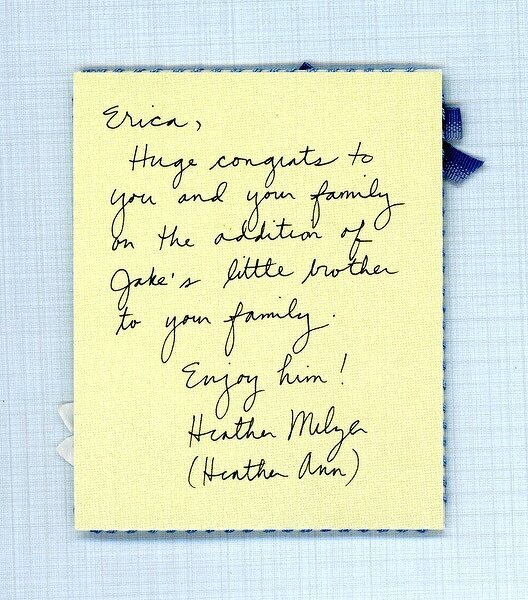 Erica,
Huge congrats to
you and your family
on the addition of
Jake's little brother
to your family.
Enjoy him!
Heather Melzer
(Heather Ann)